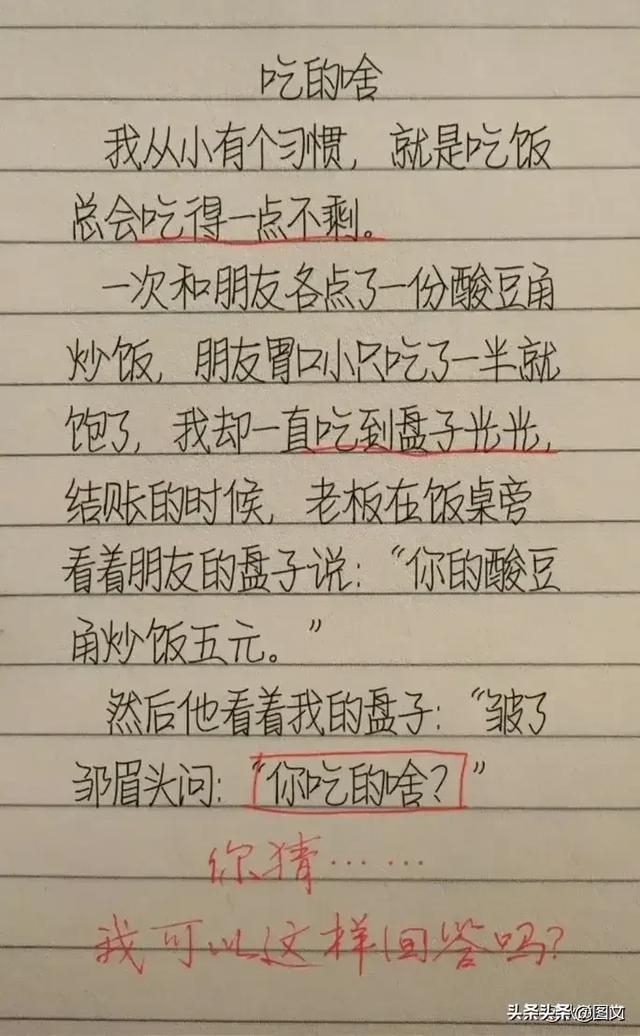 吃的啥
我从小有个习惯，就是吃饭
总会吃得一点不剩。
一次和朋友各点了一份酸豆角
炒饭，朋友胃口小只吃了一半就
饱了，我却一直吃到盘子光光，
结账的时候，老板在饭桌旁
看着朋友的盘子说：“你的酸豆
角炒饭五元。”
然后他看着我的盘子：“皱了
邹眉头问：“你吃的啥？”
你猜……
我可以这样回答吗？
头条头条@图文